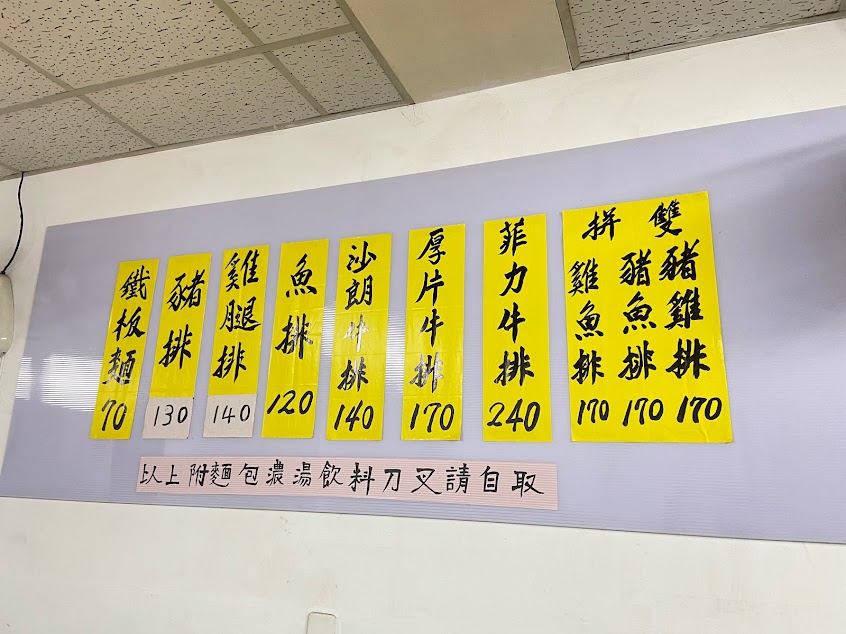 雙拼
豬雞排 170
豬魚排 170
雞魚排 170
菲力牛排 240
厚片牛排 170
沙朗牛排 140
魚排 120
雞腿排 140
豬排 130
鐵板麵 70
以上附麵包濃湯飲料刀叉請自取